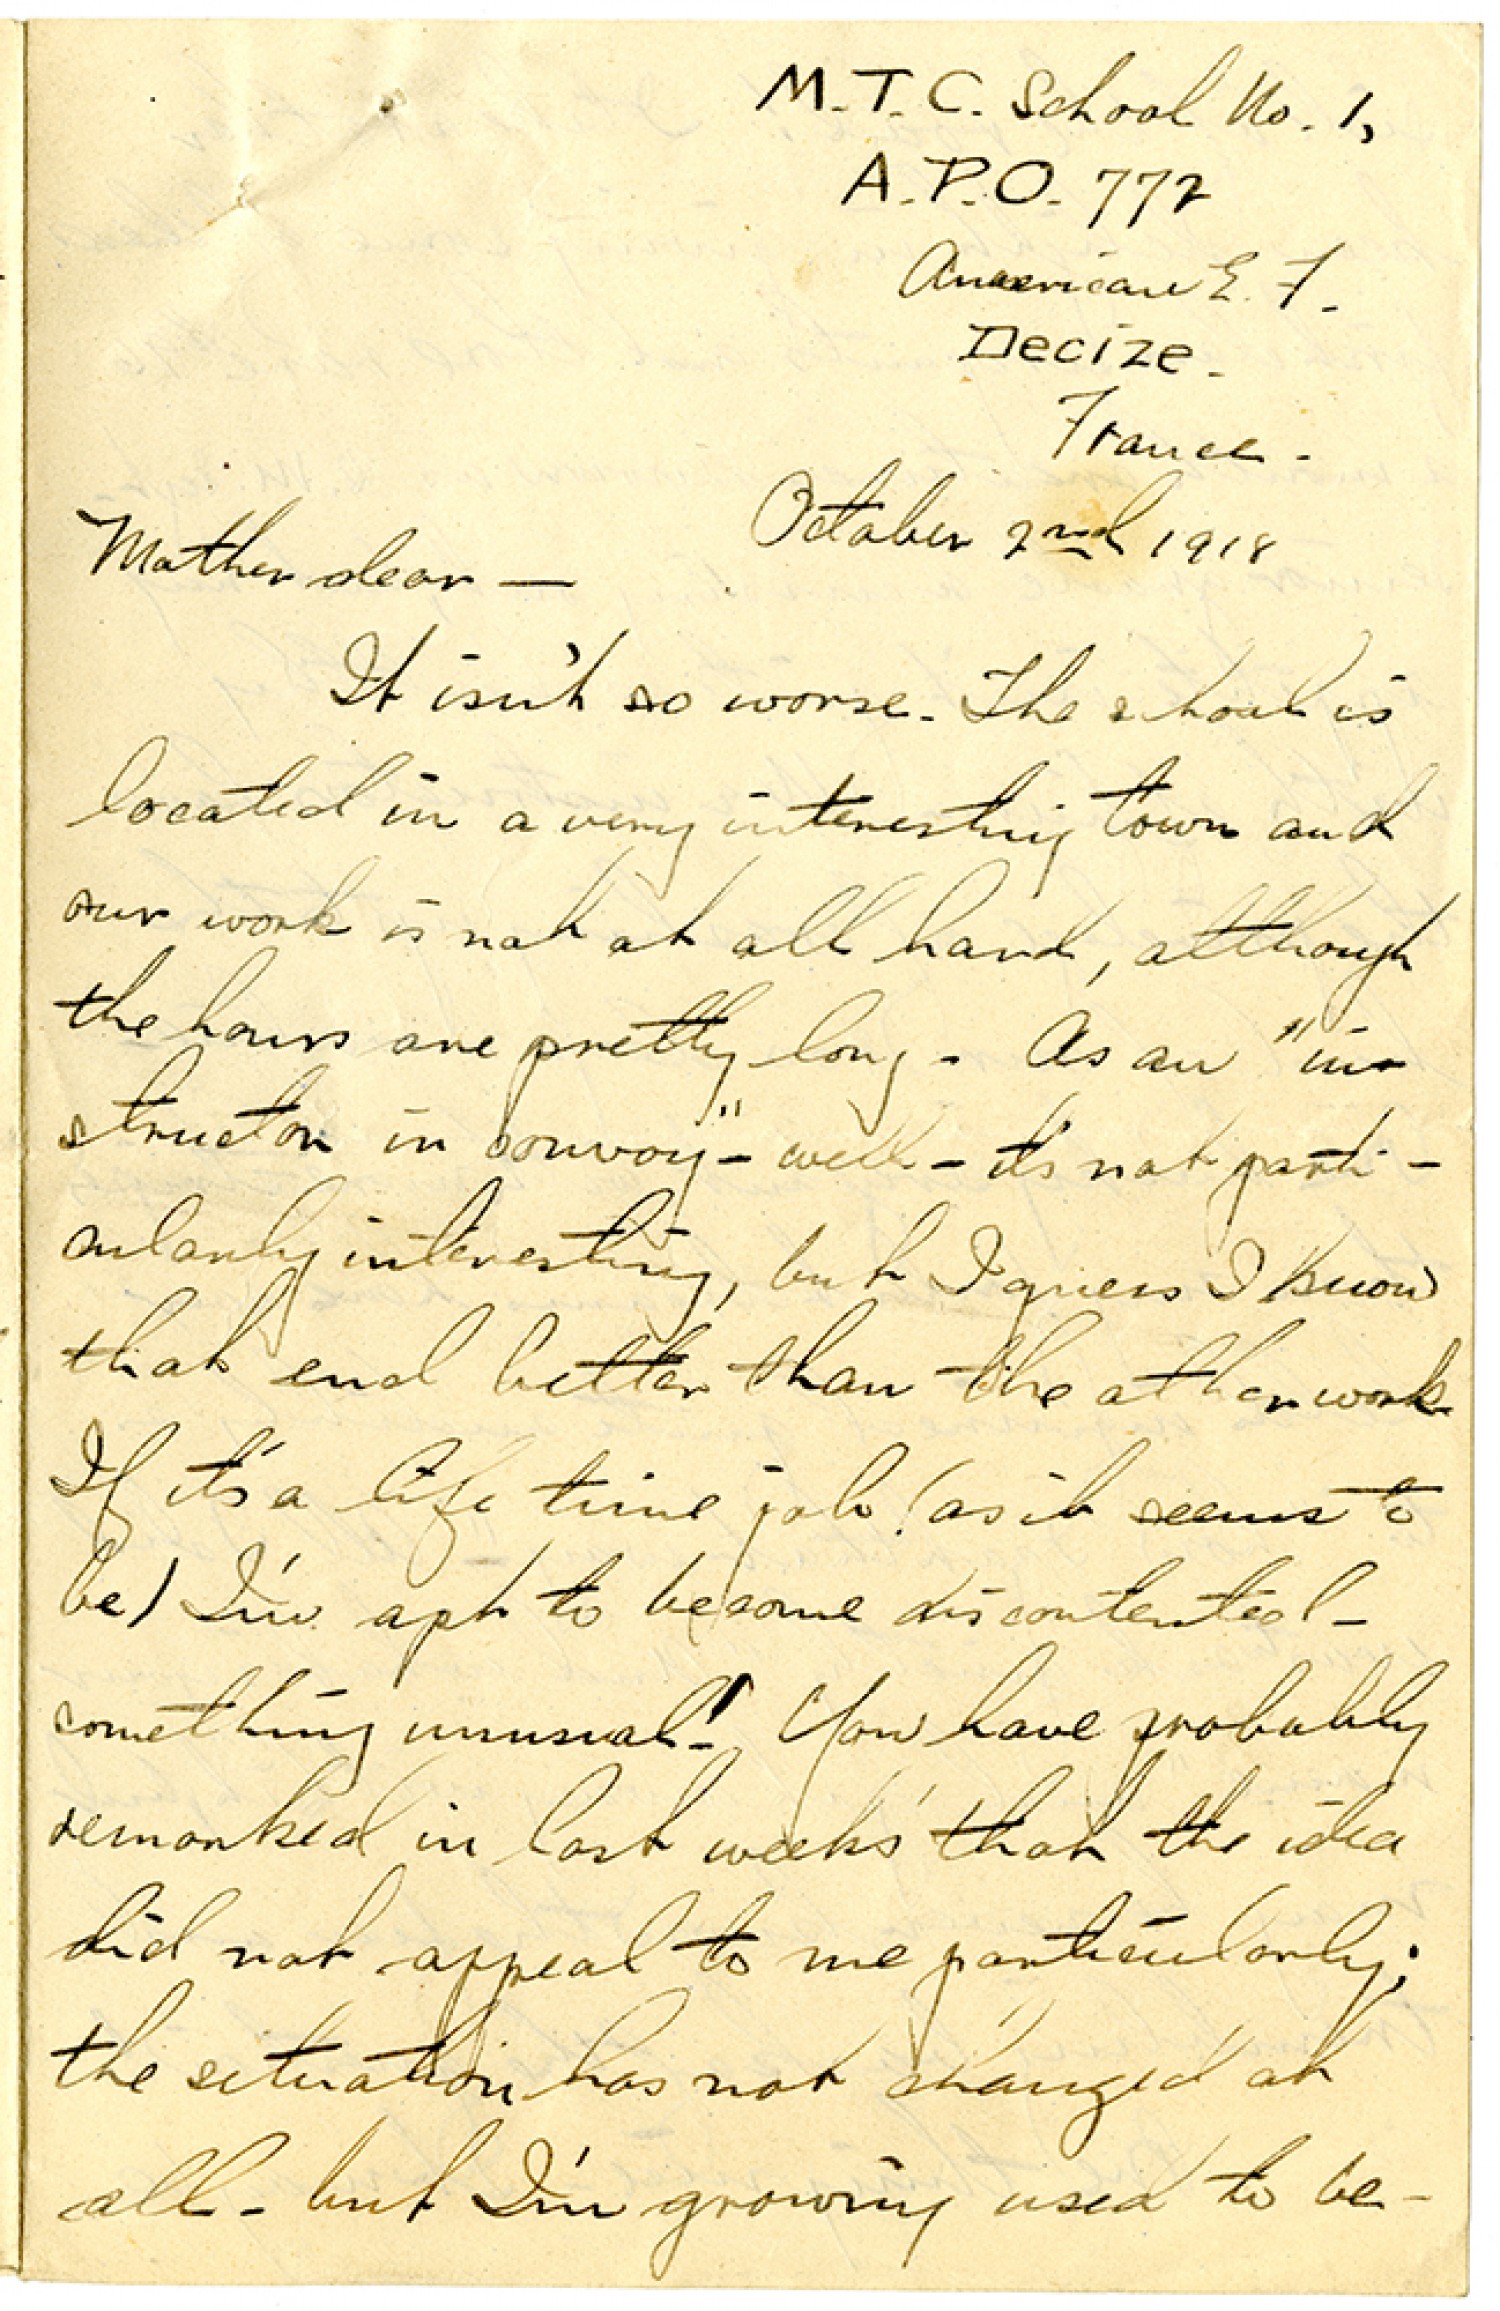 M.T.C. School No. 1,
A.P.O. 772
American E. F.
Decize.
France.
October 2nd 1918
Mother dear —
It isn't so worse. The school is
located in a very interesting town and
our work is not at all hard, although
the hours are pretty long. As an "in-
structor in convoy" - well - it's not parti-
cularly interesting, but I guess I know
that end better than the other work
If it's a life time job (as it seems to
be) I'm apt to become discontented -
something unusual! You have probably
remarked in last weeks' that the idea
did not appeal to me particularly;
the situation has not changed at
all - but I'm growing used to be-